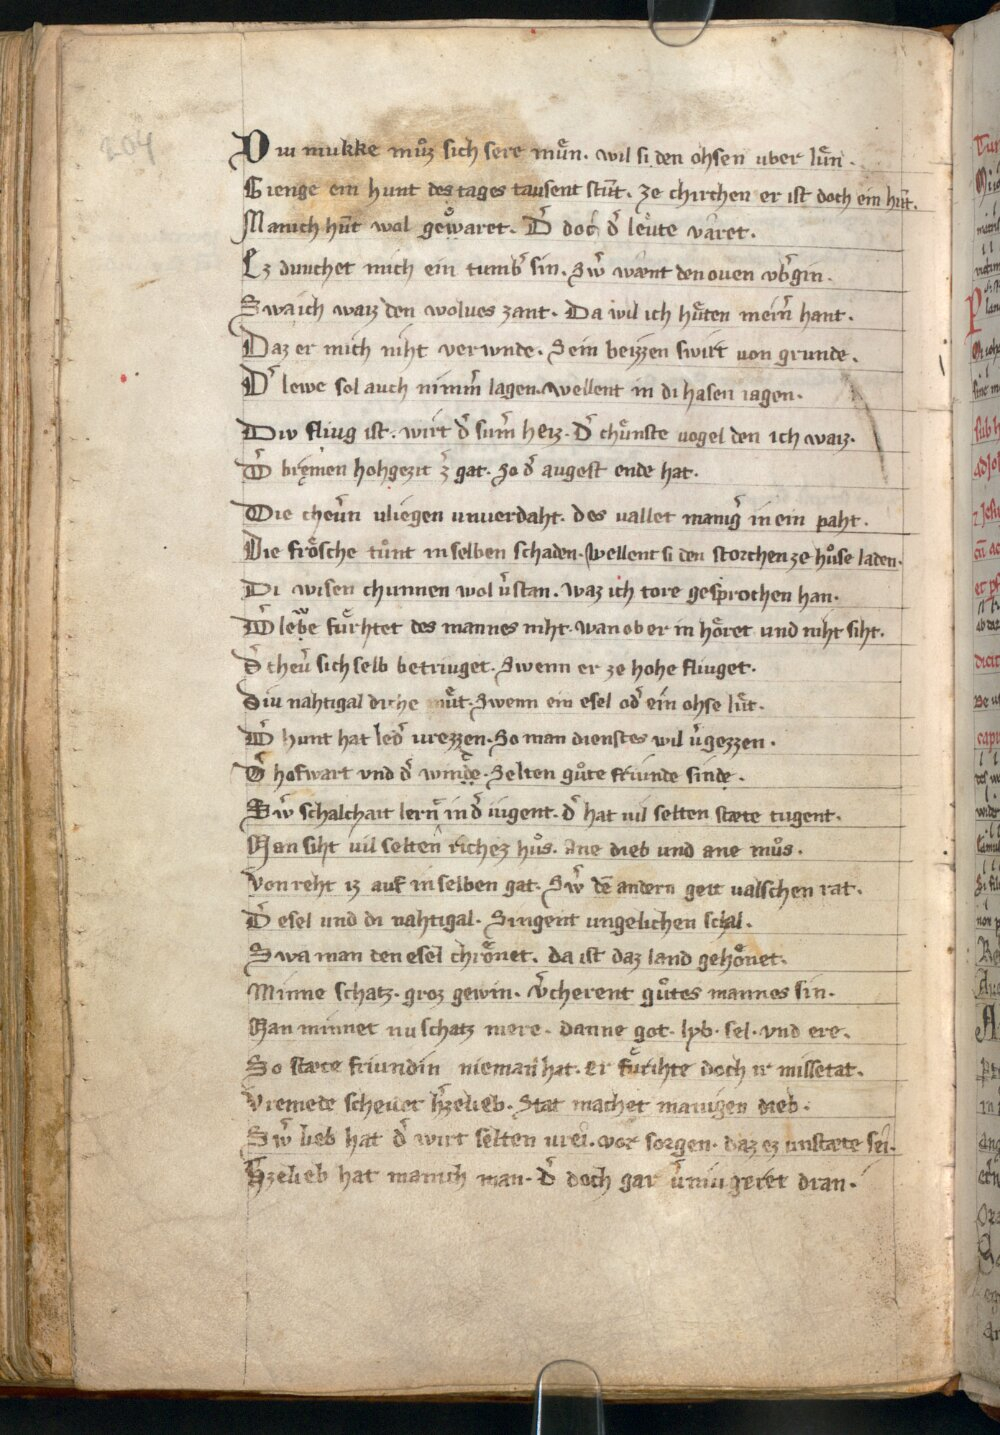 204
Diu mukke muͦz sich sere muͤn. wil si den ohsen uber luͤn.
Gienge ein hunt des tages tausent stūt. ze chirchen er ist doch ein hūt.
Manich hūt wol gewaret. D̾ doch d̾ leute varet.
Ez dunchet mich ein tumb̾ sin. Sw̾ wænt den ouen vb̾gin.
Swa ich waiz den wolues zant. Da wil ich huͤten mein̾ hant.
Daz er mich niht verwnde. Sein beizzen swirt uon grunde.
D̾ lewe sol auch nimm̾ lagen. wellent in di hasen iagen.
Diw fliug ist. wirt d̾ sum̾ heiz. d̾ chuͤnste uogel den ich waiz.
D̾ bremen hohgezit z̾gat. So d̾ augest ende hat.
Die chev̾n uliegen unuerdaht. des uallet manig̾ in ein paht.
Die froͤsche tuͦnt in selben schaden. wellent si den storchen ze huͦse laden.
Di wisen chunnen wol v̾stan. waz ich tore gesprochen han.
D̾ lebe fuͤrhtet des mannes niht. wan ob er in hoͤret und niht siht.
D̾ cheu̾ sich selb betriuget. Swenn er ze hohe fliuget.
Diu nahtigal diche muͤt. Swenn ein esel od̾ ein ohse luͤt.
D̾ hunt hat led̾ urezzen. So man dienstes wil v̾gezzen.
D̾ hofwart vnd d̾ winde. Selten guͦte friunde sinde.
Sw̾ schalchait lern̾ in d̾ iugent. d̾ hat uil selten stæte tugent.
Man siht uil selten richez huͦs. Ane dieb und ane muͦs.
Von reht iz auf in selben gat. Sw̾ dē andern geit ualschen rat.
D̾ esel und di nahtigal. Singent ungelichen schal.
Swa man den esel chroͤnet. da ist daz land gehoͤnet.
Minne schatz. groz gewin. v̾cherent guͦtes mannes sin.
Man minnet nu schatz mere. danne got. lyb. sel. vnd ere.
So stæte friundin nieman hat. Er fuͤrihte doch ir missetat.
Vremede scheuet h̾zelieb. Stat machet manigen dieb.
Sw̾ lieb hat d̾ wirt selten urei. vor sorgen. daz ez unstæte sei.
H̾zelieb hat manich man. d̾ doch gar v̾niugeret dran.